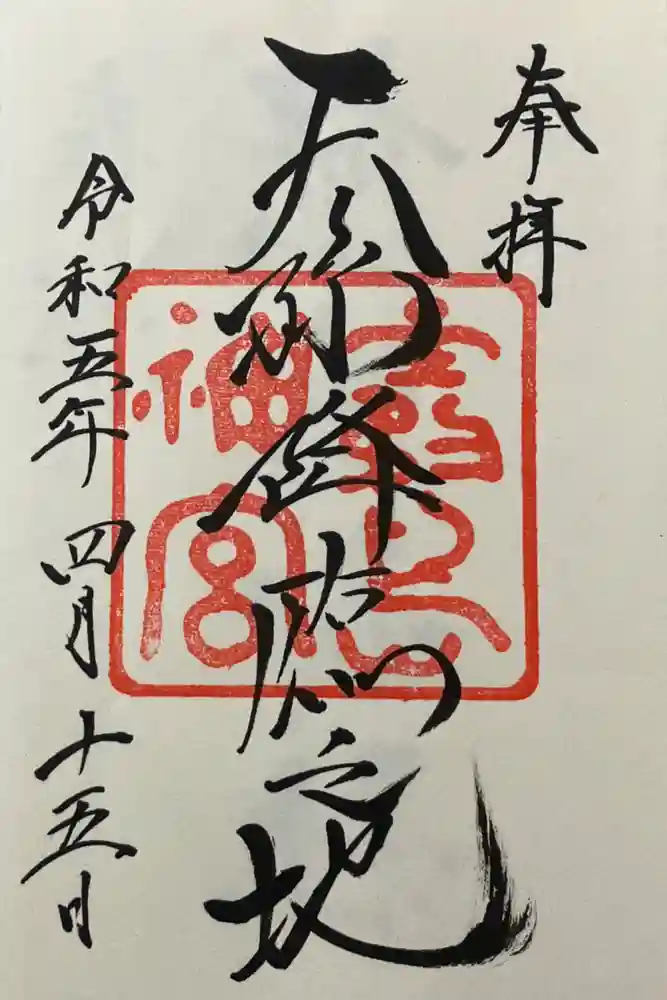 奉拝
天孫降臨之地
令和五年四月十五日
神宮